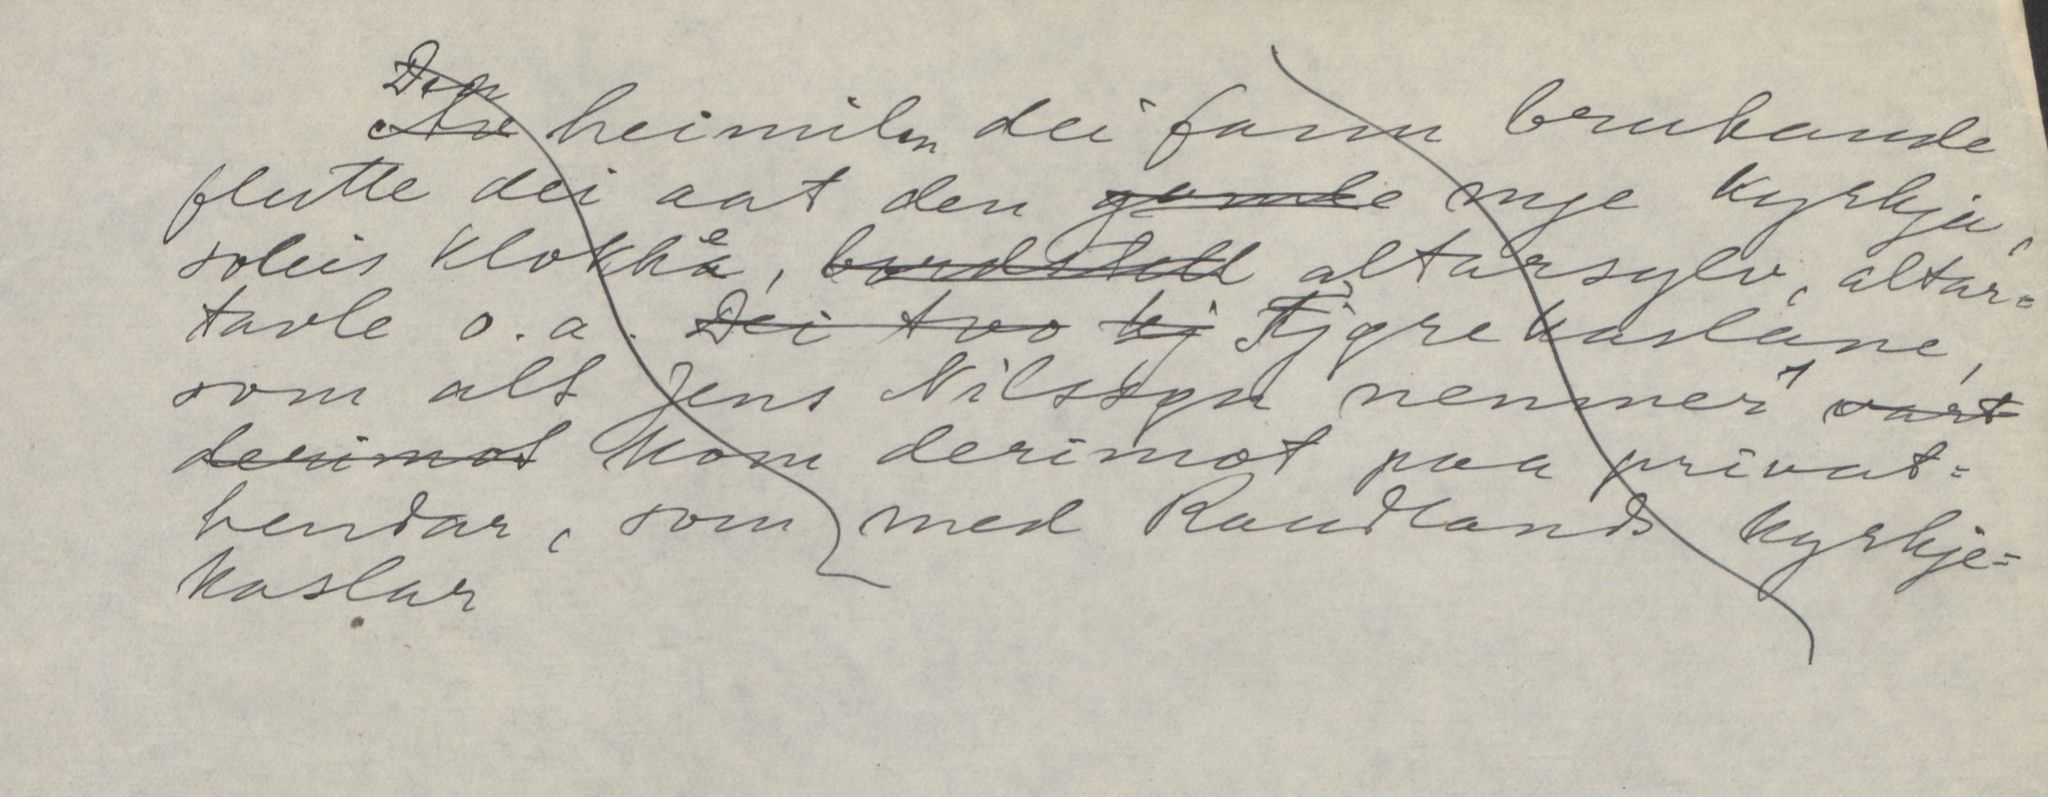 Den
Av heimilen dei fann brukande
flutte dei aat den gamle nye kyrkja,
soleis klokke, bordstell altarsylv, altar=
tavle o. a. Dei tvo kj Fjgrekaslane,
som alt Jens Nilssøn nemner, vart
derimot kom derimot paa privat=
hendar, som med Raudlands kyrkje=
kaslar